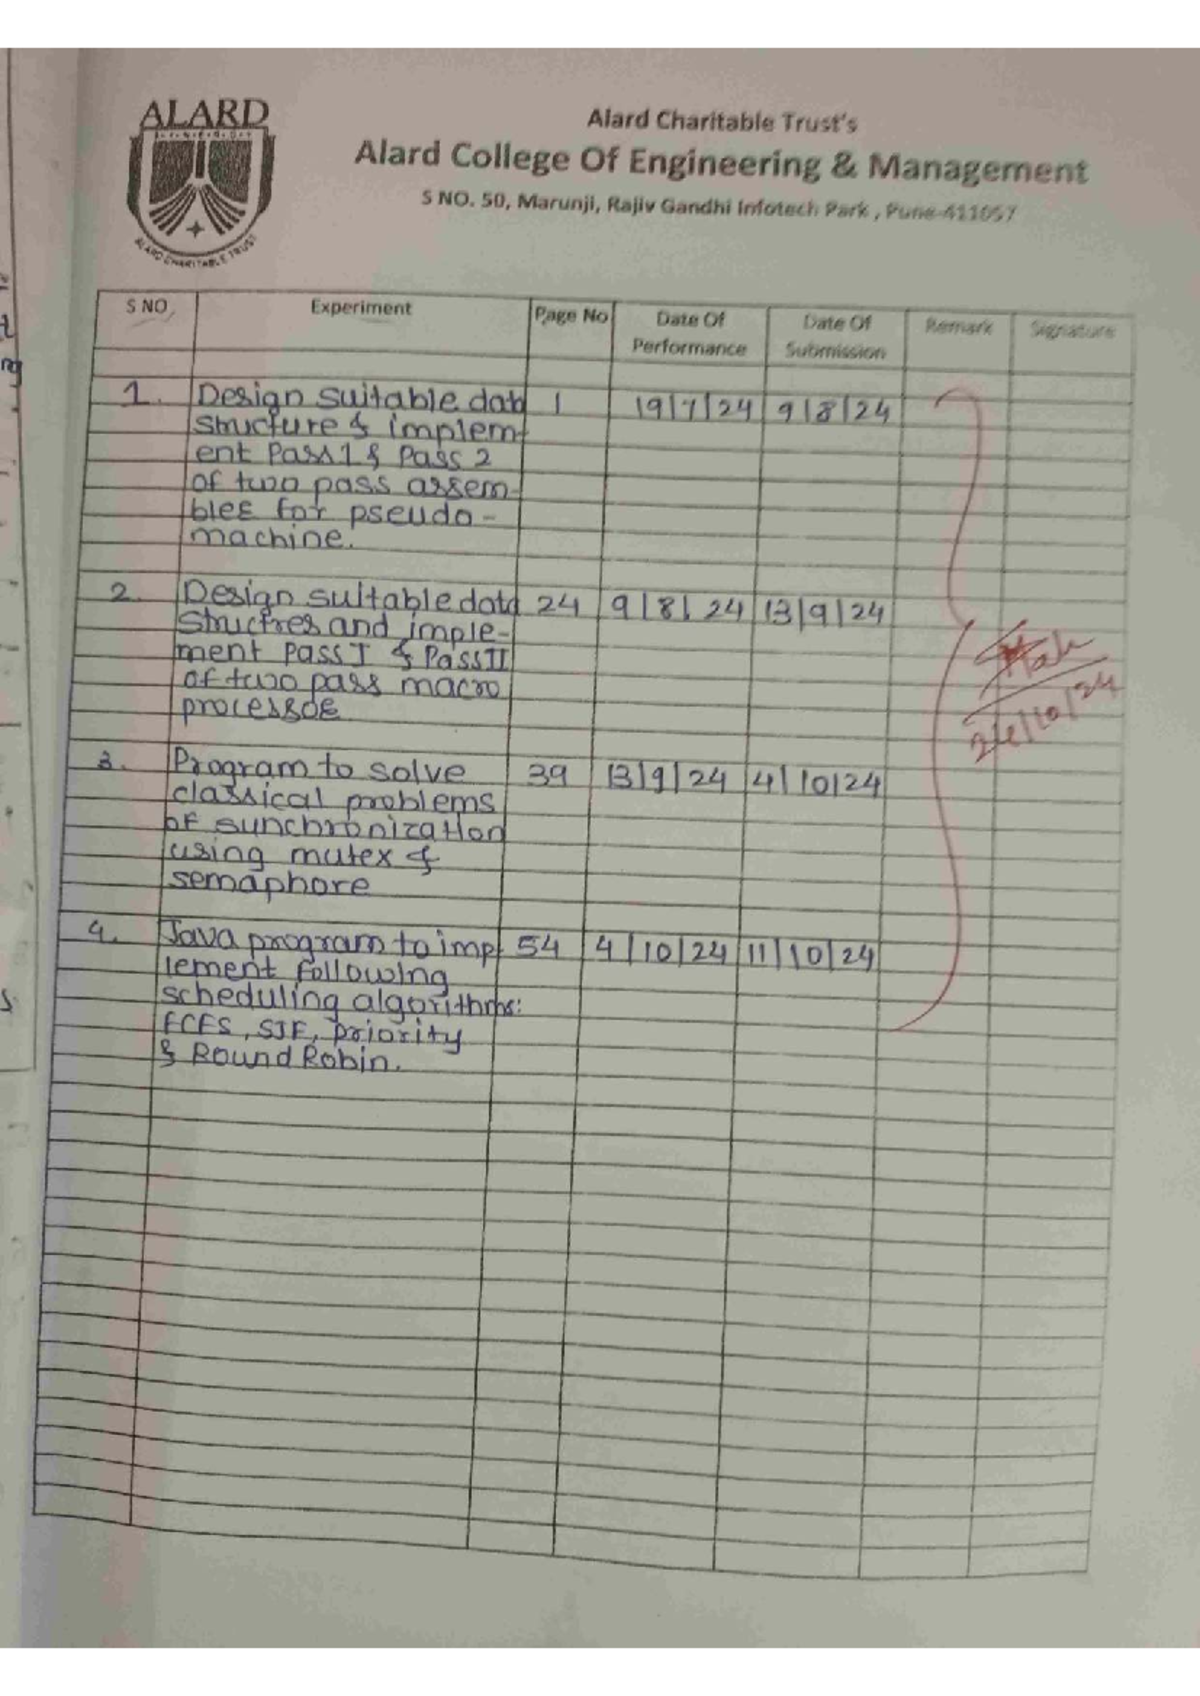 ALARD
ALARD CHARITABLE TRUST
Alard Charitable Trust's
Alard College Of Engineering & Management
S NO. 50, Marunji, Rajiv Gandhi Infotech Park , Pune-411057
S NO. Experiment Page No Date Of Performance Date Of Submission Remark Signature
1. Design suitable data 1 19/7/24 9/8/24
structure & implem-
ent Pass1 & Pass 2
of two pass assem-
bler for pseudo-
machine.
2. Design suitable data 24 9/8/24 13/9/24
structres and imple-
ment Pass I & Pass II
of two pass macro
processor
3. Program to solve 39 13/9/24 4/10/24
classical problems
of synchronization
using mutex &
semaphore
4. Java program to imp- 54 4/10/24 11/10/24
lement following
scheduling algorithms:
FCFS, SJF, priority
& Round Robin.